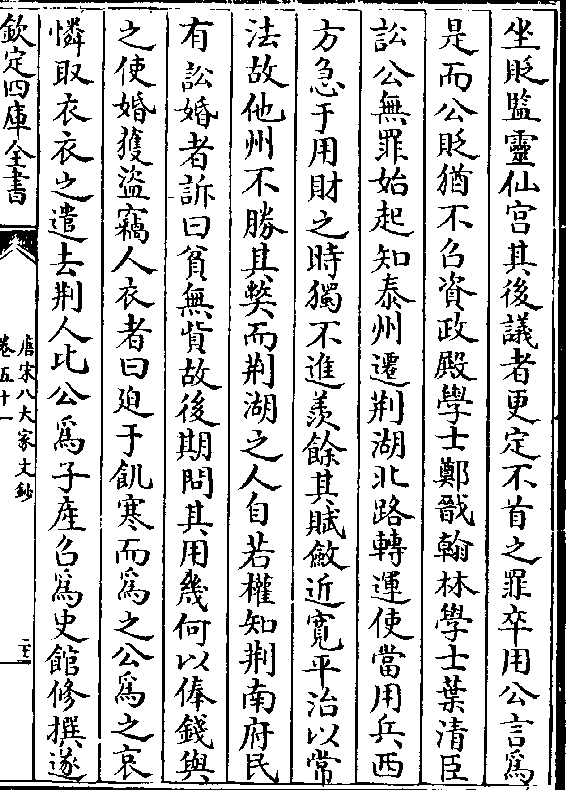 坐貶監靈仙宫其後議者更定不首之罪卒用公言為
是而公貶猶不召資政殿學士鄭戩翰林學士葉清臣
訟公無罪始起知泰州遷荆湖北路轉運使當用兵西
方急于用財之時獨不進羨餘其賦斂近寛平治以常
法故他州不勝其弊而荆湖之人自若權知荆南府民
有訟婚者訴曰貧無貲故後期問其用幾何以俸錢與
之使婚獲盜竊人衣者曰廹于飢寒而為之公為之哀
憐取衣衣之遣去荆人比公為子産召為史館修撰遂
欽定四庫全書
唐宋八大家文鈔
卷五十一